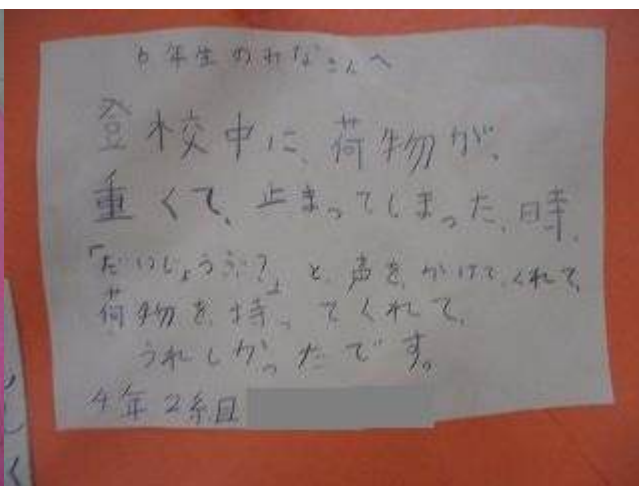 6年生のれなさんへ
登校中に、荷物が、
重くて、止まってしまった、時、
「だいじょうぶ？」と、声を、かけて、くれて、
荷物を、持ってくれて、
うれしかったです。
4年2組